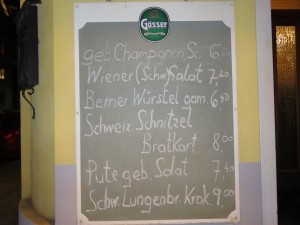 Gösser
geb. Champignon, S. 6,-
Wiener (Schw) Salat 7,20
Berner Würstel gem 6,50
Schweiz Schnitzel
Bratkart. 8,00
Pute geb. Salat 7,40
Schw. Lungenbr. Krok. 9,00